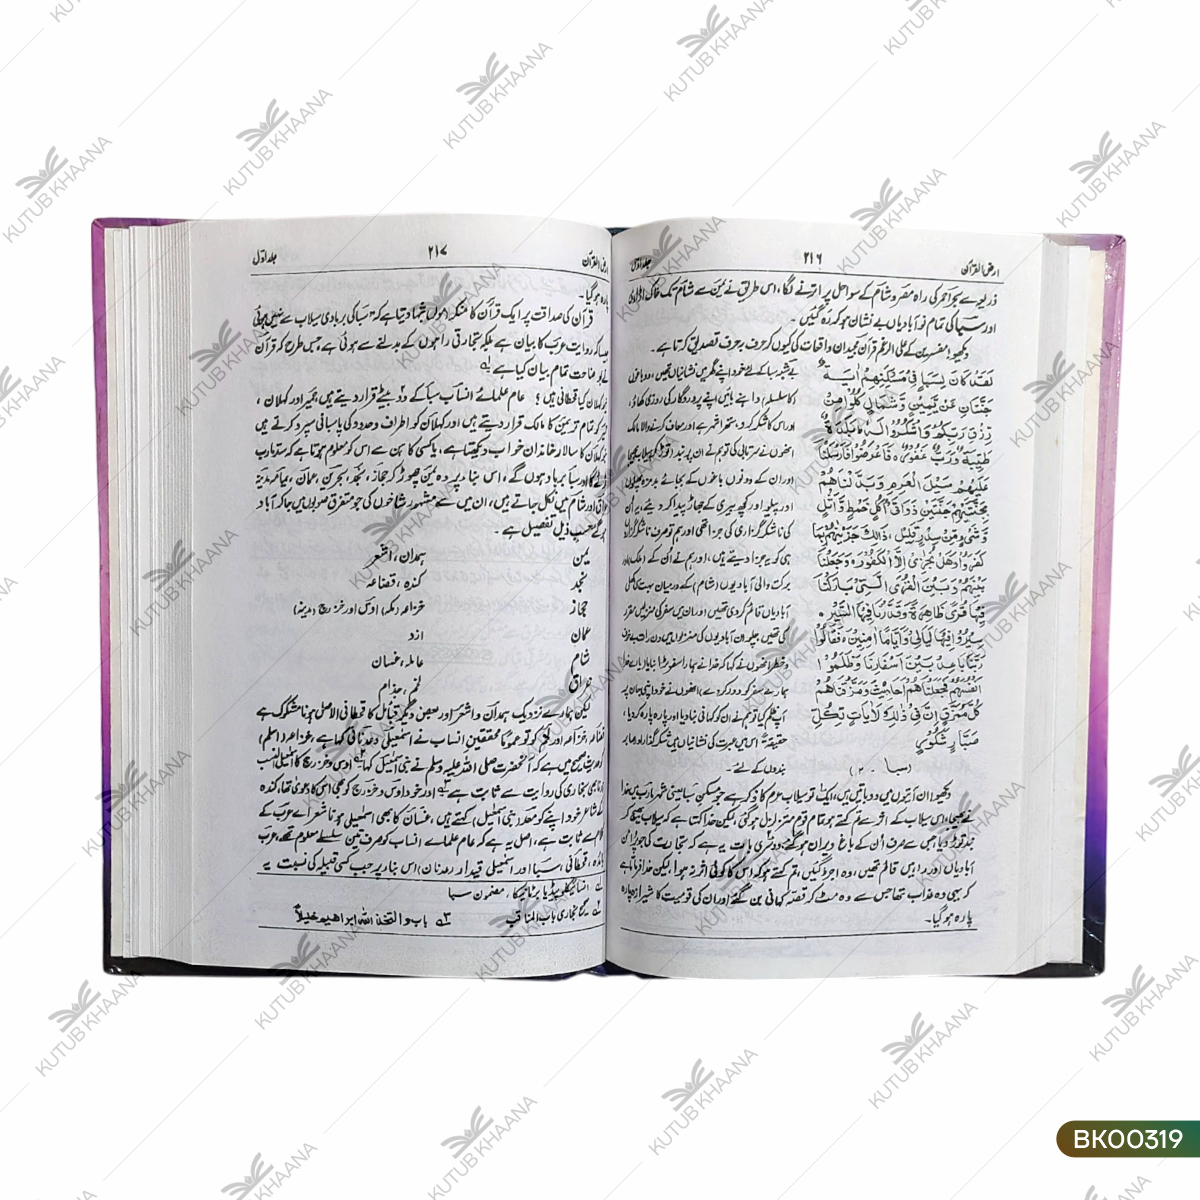 ارض القرآن ۲۱۶ جلد اوّل
ذریعہ سے بحر احمر کی راہ مصر و شام کے سواحل پر اترنے لگا، اس طریق نے یمن سے شام تک خاک اڑا دی
اور سبا کی تمام نو آبادیاں بے نشان ہو کر رہ گئیں۔
دیکھو! مفسرین کے علی الرغم قرآن مجید ان واقعات کی کیوں کر حرف بحرف تصدیق کرتا ہے۔
لَقَدْ كَانَ لِسَبَإٍ فِي مَسْكَنِهِمْ آيَةٌ
جَنَّتَانِ عَنْ يَمِينٍ وَّشِمَالٍ كُلُوا مِنْ
رِّزْقِ رَبِّكُمْ وَاشْكُرُوا لَهُ بَلْدَةٌ
طَيِّبَةٌ وَّرَبٌّ غَفُورٌ فَأَعْرَضُوا فَأَرْسَلْنَا
عَلَيْهِمْ سَيْلَ الْعَرِمِ وَبَدَّلْنَاهُمْ
بِجَنَّتَيْهِمْ جَنَّتَيْنِ ذَوَاتَيْ أُكُلٍ خَمْطٍ وَّأَثْلٍ
وَّشَيْءٍ مِّنْ سِدْرٍ قَلِيلٍ، ذَٰلِكَ جَزَيْنَاهُمْ بِمَا
كَفَرُوا وَهَلْ نُجَازِي إِلَّا الْكَفُورَ، وَجَعَلْنَا
بَيْنَهُمْ وَبَيْنَ الْقُرَى الَّتِي بَارَكْنَا
فِيهَا قُرًى ظَاهِرَةً وَّقَدَّرْنَا فِيهَا السَّيْرَ
سِيرُوا فِيهَا لَيَالِيَ وَأَيَّامًا آمِنِينَ، فَقَالُوا
رَبَّنَا بَاعِدْ بَيْنَ أَسْفَارِنَا وَظَلَمُوا
أَنْفُسَهُمْ فَجَعَلْنَاهُمْ أَحَادِيثَ وَمَزَّقْنَاهُمْ
كُلَّ مُمَزَّقٍ إِنَّ فِي ذَٰلِكَ لَآيَاتٍ لِّكُلِّ
صَبَّارٍ شَكُورٍ
(سبا - ۲)
بے شبہ سبا کے لئے خود اپنے گھر میں نشانیاں تھیں، دو باغوں
کا سلسلہ داہنے بائیں اپنے پروردگار کی روزی کھاؤ،
اور اس کا شکر کرو، ستھرا شہر ہے اور معاف کرنے والا مالک
انھوں نے سرتابی کی تو ہم نے ان پر بند توڑ کر سیلاب بھیجا
اور ان کے دونوں باغوں کے بجائے بدمزہ پھلوں
اور پیلو اور کچھ بیری کے جھاڑ پیدا کر دیئے، یہ اُن
کی ناشکر گزاری کی جزا تھی اور ہم تو صرف ناشکر گزاروں
ہی کو یہ جزا دیتے ہیں، اور ہم نے اُن کے ملک اور
برکت والی آبادیوں (شام) کے درمیان بہت سی کھلی
آبادیاں قائم کر دی تھیں اور ان میں سفر کی منزلیں مقرر
کی تھیں چلو ان آبادیوں کی منزلوں میں دن رات بے خوف
و خطر انھوں نے کہا کہ خدا نے ہمارا سفر بڑا بنا دیا یا اے خدا
ہمارے سفر کو دور کر دے، انھوں نے خود اپنی جان پر
آپ ظلم کیا تو ہم نے ان کو کہانی بنا دیا اور پارہ پارہ کر دیا،
حقیقۃً اس میں عبرت کی نشانیاں ہیں شکر گزار اور صابر
بندوں کے لئے۔
دیکھو! ان آیتوں میں دو باتیں ہیں، ایک تو سیلاب عرم کا ذکر ہے جو مسکن سبا یعنی شہر مارب پر خدا
نے بھیجا، اس سیلاب کے اثر سے تم کہتے ہو تمام قوم متزلزل ہو گئی، لیکن خدا کہتا ہے کہ سیلاب بھیج کر
بند توڑ دیا جس سے صرف اُن کے باغ ویران ہو گئے، دوسری بات یہ ہے کہ تجارت کی جو بڑا اُن
آبادیاں اور راہیں قائم تھیں، وہ اجڑ گئیں، تم کہتے ہو کہ اس کا کوئی اثر نہ ہوا، لیکن خدا فرماتا ہے
کہ یہی وہ عذاب تھا جس سے وہ مٹ کر قصّہ کہانی بن گئے، اور ان کی قومیت کا شیرازہ پارہ
پارہ ہو گیا۔
ارض القرآن ۲۱۷ جلد اوّل
پارہ ہو گیا۔
قرآن کی صداقت پر ایک قرآن کا منکر اصول شہادت دیتا ہے کہ "سبا کی بربادی سیلاب سے نہیں ہوئی
جیسا کہ روایت عرب کا بیان ہے بلکہ تجارتی راہوں کے بدلنے سے ہوئی ہے جس طرح کہ قرآن
نے بوضاحت تمام بیان کیا ہے
حمیر و کہلان کیا قحطانی ہیں؟ عام علمائے انساب سبا کے دو بیٹے قرار دیتے ہیں حمیر اور کہلان،
حمیر کو تمام تر یمن کا مالک قرار دیتے ہیں اور کہلان کو اطراف و حدود کی پاسبانی سپرد کرتے ہیں
پھر کہلان کا سالار خاندان خواب دیکھتا ہے، یا کسی کاہن سے اس کو معلوم ہوتا ہے کہ سد مارب
ٹوٹے گا اور سبا برباد ہوں گے، اس بنا پر وہ یمن چھوڑ کر حجاز، نجد، بحرین، عمان، یمامہ، مدینہ
عراق اور شام میں نکل جاتے ہیں، ان میں سے مشہور شاخوں کی جو متفرق صوبوں میں جا کر آباد
ہوئے حسب ذیل تفصیل ہے۔
یمن ہمدان، اشعر
نجد کندہ، قضاعہ
حجاز خزاعہ (مکہ) اوس اور خزرج (مدینہ)
عمان ازد
شام عاملہ، غسان
عراق لخم، جذام
لیکن ہمارے نزدیک ہمدان و اشعر اور بعض دیگر قبائل کا قحطانی الاصل ہونا مشکوک ہے
قضاعہ، خزاعہ اور لخم کو تو عموماً محققین انساب نے اسمٰعیلی و عدنانی کہا ہے، خزاعہ (اسلم)
حدیث صحیح میں ہے کہ آنحضرت صلی اللہ علیہ وسلم نے بنی اسمٰعیل کہا، اوس و خزرج کا اسمٰعیلی النسب
ہونا بھی بخاری کی روایت سے ثابت ہے اور خود اوس و خزرج کو بھی اس کا دعویٰ تھا، کندہ
کے شاعر خود اپنے کو معد (بنی اسمٰعیل) کہتے ہیں، غسان کا بھی اسمٰعیلی ہونا شعرائے عرب کے
کلام سے ثابت ہے، اصل یہ ہے کہ عام علمائے انساب کو صرف تین سلسلے معلوم تھے، عرب
بائدہ، قحطانی، سبا اور اسمٰعیلی قیدار (عدنان) اس بنا پر جب کسی قبیلہ کی نسبت یہ
۱ انسائیکلوپیڈیا برٹانیکا، مضمون سبا
۲ بخاری باب المناقب ۳ باب واتخذ اللہ ابراہیم خلیلا
KUTUB KHAANA
BK00319